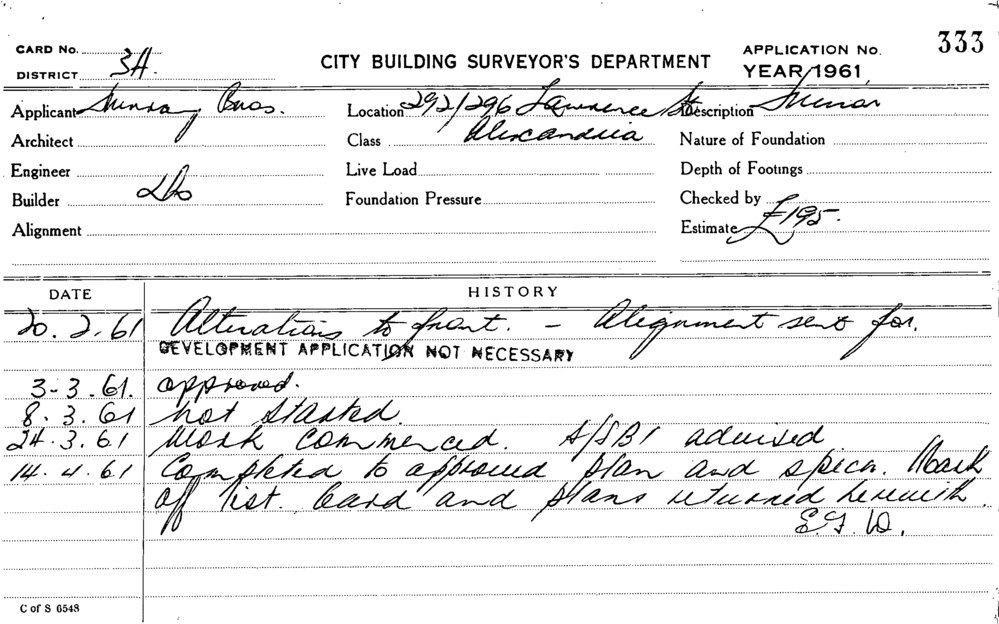 CARD No.
DISTRICT 3A.
CITY BUILDING SURVEYOR'S DEPARTMENT
APPLICATION No. 333
YEAR/1961
Applicant Murray Bros.
Location 292/296 Lawrence St
Alexandria
Description Minor
Architect
Class
Nature of Foundation
Engineer
Live Load
Depth of Footings
Builder Do
Foundation Pressure
Checked by
Alignment
Estimate £195.
DATE
HISTORY
20.2.61 Alterations to front. – Alignment sent for.
DEVELOPMENT APPLICATION NOT NECESSARY
3-3.61. approved.
8.3.61 Not started.
24.3.61 Work commenced. A/SBI advised
14.4.61 Completed to approved plan and specn. Mark
off list. Card and plans returned herewith.
C of S 6548